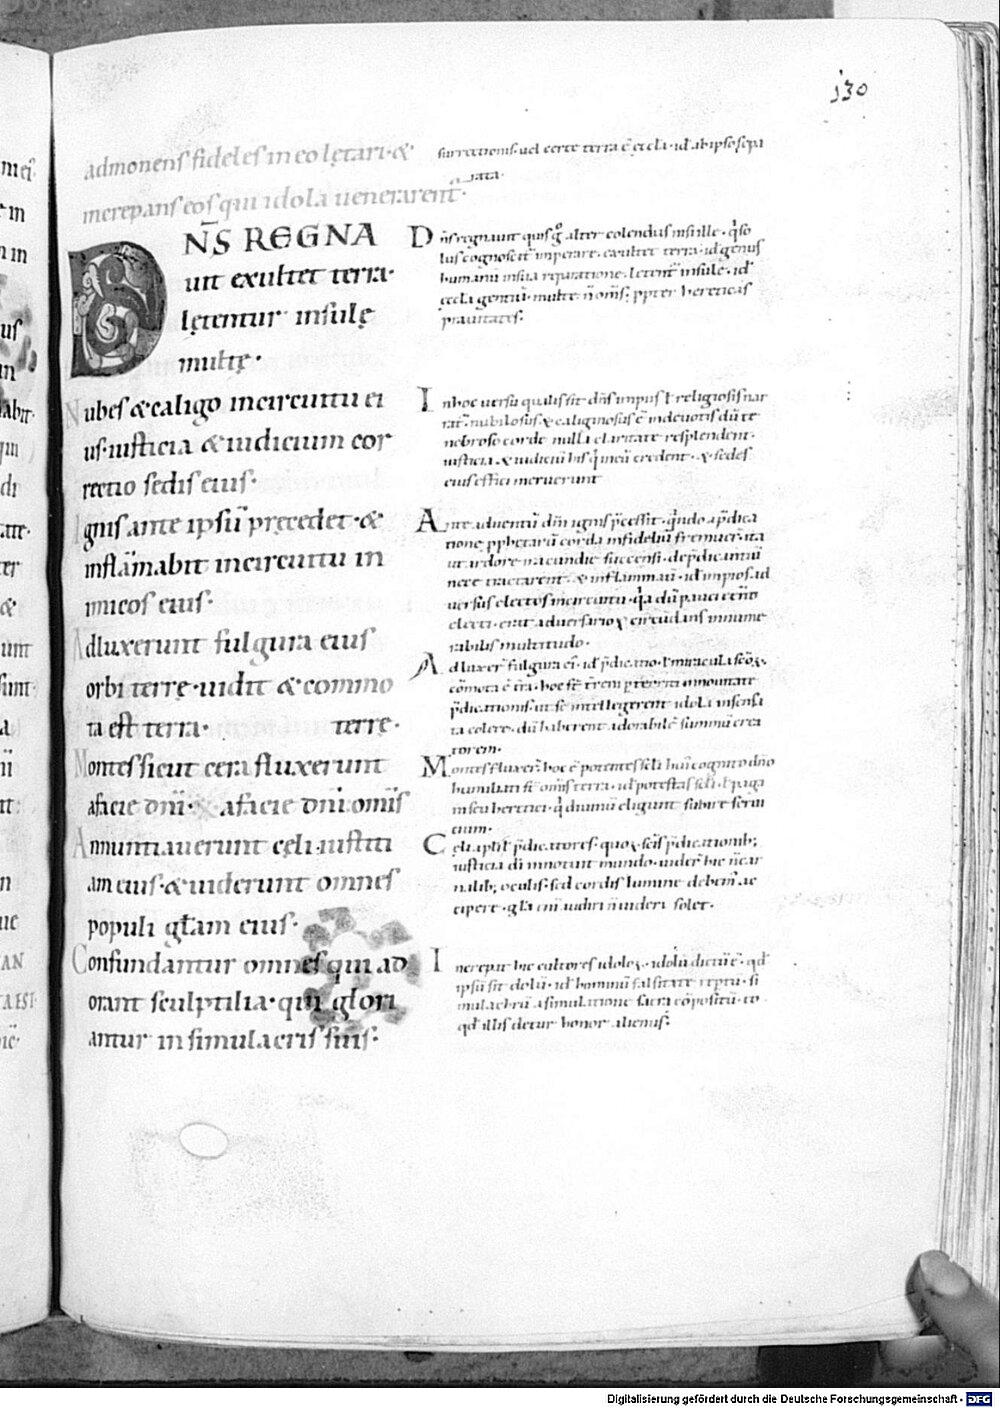 130
admonens fideles in eo lętari·&
increpans eos qui idola uenerarent̄·
surrectionis· uel certe terra ē ęccła· id ab ipso sepa
rata·
DN̄S REGNA
uit exultet terra·
lętentur insulę
multę·
Nubes & caligo in circuitu ei
us· iusticia & iudicium cor
rectio sedis eius·
Ignis ante ipsū pręcedet·&
inflāmabit in circuitu in
imicos eius·
Adluxerunt fulgura eius
orbi terrę· uidit & commo
ta est terra· terrę·
Montes sicut cera fluxerunt
a facie dn̄i· a facie dn̄i omīs
Annuntiauerunt cęli iustiti
am eius·& uiderunt omnes
populi głam eius·
Confundantur omnes qui ad
orant sculptilia· qui glori
antur in simulacris suis·
Dn̄s regnauit alter colendus ille
exultet terra· id genus
humanū in sua reparatione· letent̄ insule· id
ęccla gentiū· multe propter hereticas
prauitates·
In hoc uersu qualis sit dn̄s impiis ł religiosis nar
rat̄· nubilosus & caliginosus ē indeuotis dū te
nebroso corde nulla claritate resplendent·
iusticia & iudiciū his q̇ in eū credent·& sedes
eius effici meruerunt
Ante aduentū dn̄i ignis p̄cessit· q̇ndo a p̄dica
tione pphetarū corda infideliū fremuer̄· ita
ut ardore iracundie succensi· de p̄dicantiū
nece tractarent·& inflammauit id impios· id
uersus electos in circuitu· q̇a dū pauci
electi· erat aduersarioꝝ circūdans innume
rabilis multitudo·
Adluxer̄ fulgura ei· id p̄dicatio· ł miracula sc̄oꝝ·
cōmota ē t̄ra· hoc
p̄dicationis· ut se intellegerent idola insensa
ta colere· dū haberent adorabilē summū crea
torem·
Montes fluxer̄· hoc ē potentes sc̄li hui cognito dn̄o
humiliati s̄t omīs terra· id potestas sc̄li· ł paga
ni seu heretici· q̇ diuinū eligunt subire serui
tium·
Celi apłi ł p̄dicatores· quoꝝ sc̄is p̄dicationib;
iusticia di innotuit mundo· uider̄ hic n̄ car
nalib; oculis· sed cordis lumine debem̄ ac
cipere· gła eni uideri n̄ uideri solet·
Increpat hic cultores idoloꝝ· idolū dictū ē· qd̄
ipsū sit dolū· id hominū falsitate reptū· si
mulachrū a simulatione sacra cōpositū· eo
qd̄ illis detur honor alienus·
Digitalisierung gefördert durch die Deutsche Forschungsgemeinschaft - DFG